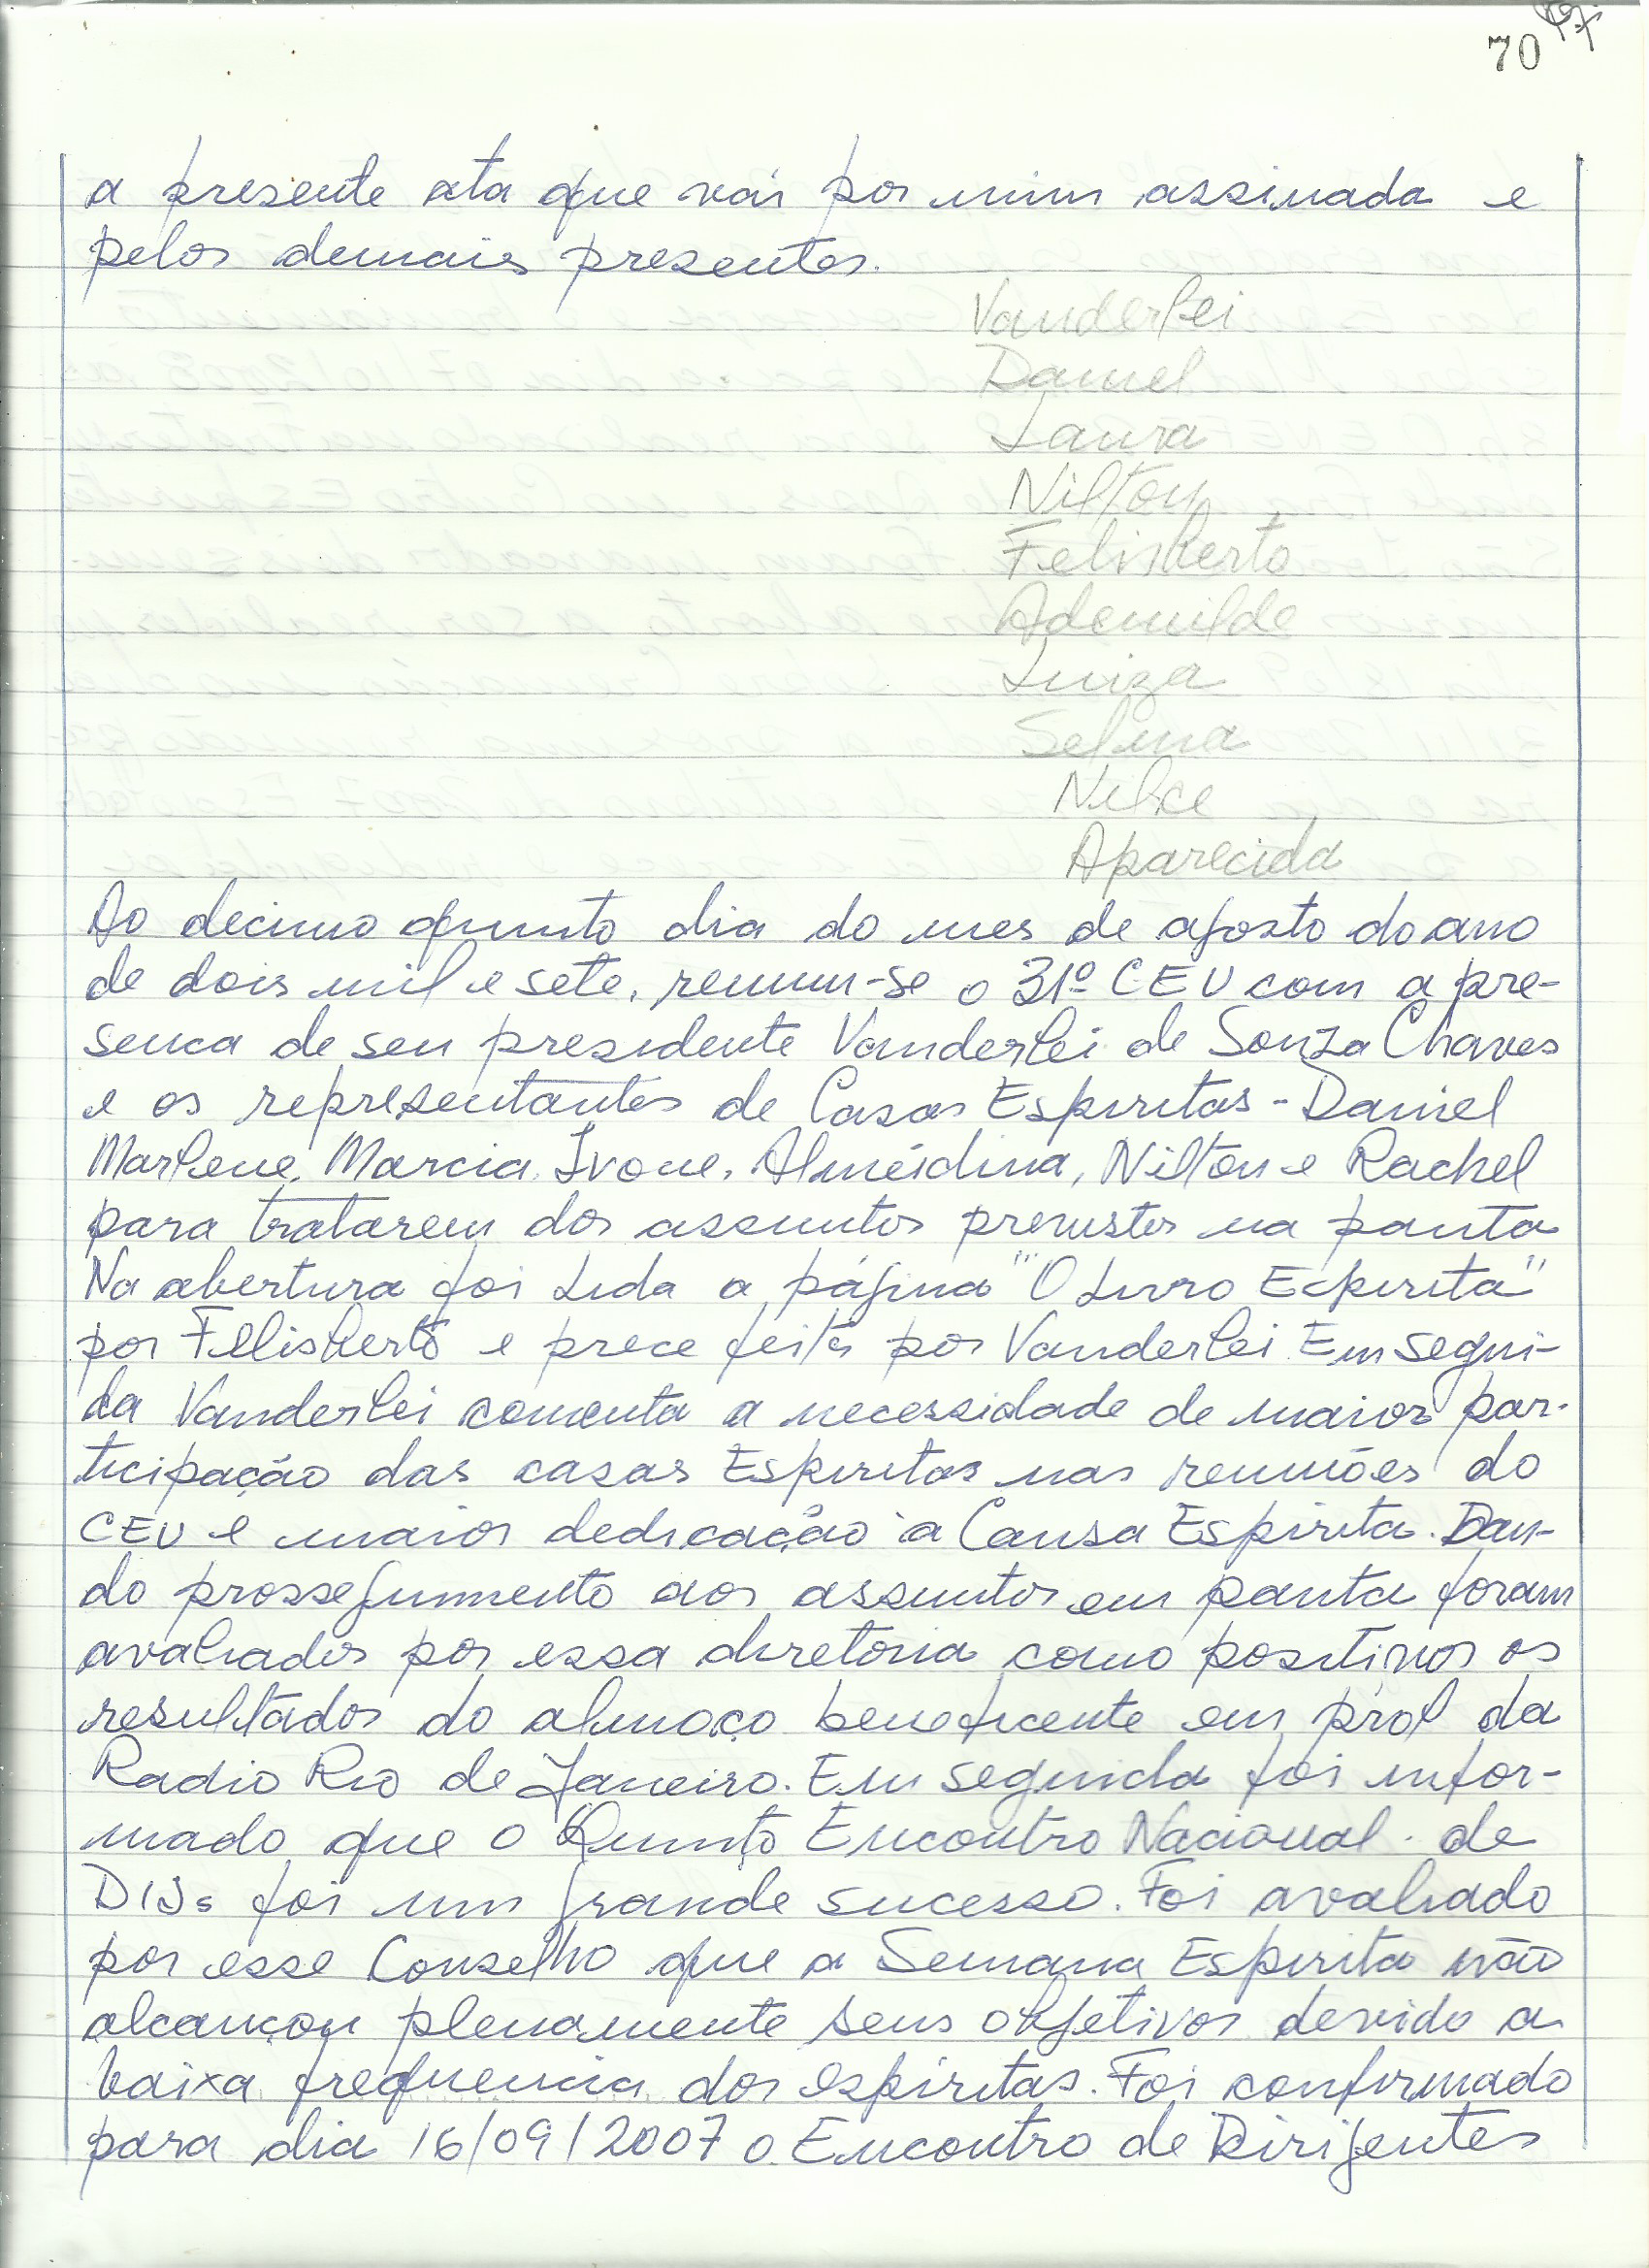 70
a presente ata que vai por mim assinada e
pelos demais presentes.
Vanderlei
Daniel
Laura
Nilton
Felisberto
Ademilde
Luiza
Selma
Nilce
Aparecida
Ao decimo quinto dia do mes de agosto do ano
de dois mil e sete, reuniu-se o 31º CEU com a pre-
senca de seu presidente Vanderlei de Souza Chaves
e os representantes de Casas Espiritas - Daniel
Marlene, Marcia, Ivone, Almeidina, Nilton e Rachel
para tratarem dos assuntos previstos na pauta
Na abertura foi Lida a página "O Livro Eспirita"
por Felisberto e prece feita por Vanderlei Em segui-
da Vanderlei comenta a necessidade de maior par-
ticipação das casas Espiritas nas reuniões do
CEU e maior dedicação a Causa Espirita. Dan-
do prosseguimento aos assuntos em pauta foram
avaliados por essa diretoria como positivos os
resultados do almoço beneficente em prol da
Radio Rio de Janeiro. Em seguida foi infor-
mado que o Quinto Encontro Nacional de
DIJs foi um grande sucesso. Foi avaliado
por esse Conselho que a Semana Espirita não
alcançou plenamente seus objetivos devido a
baixa frequencia dos espiritas. Foi confirmado
para dia 16/09/2007 o Encontro de Dirigentes